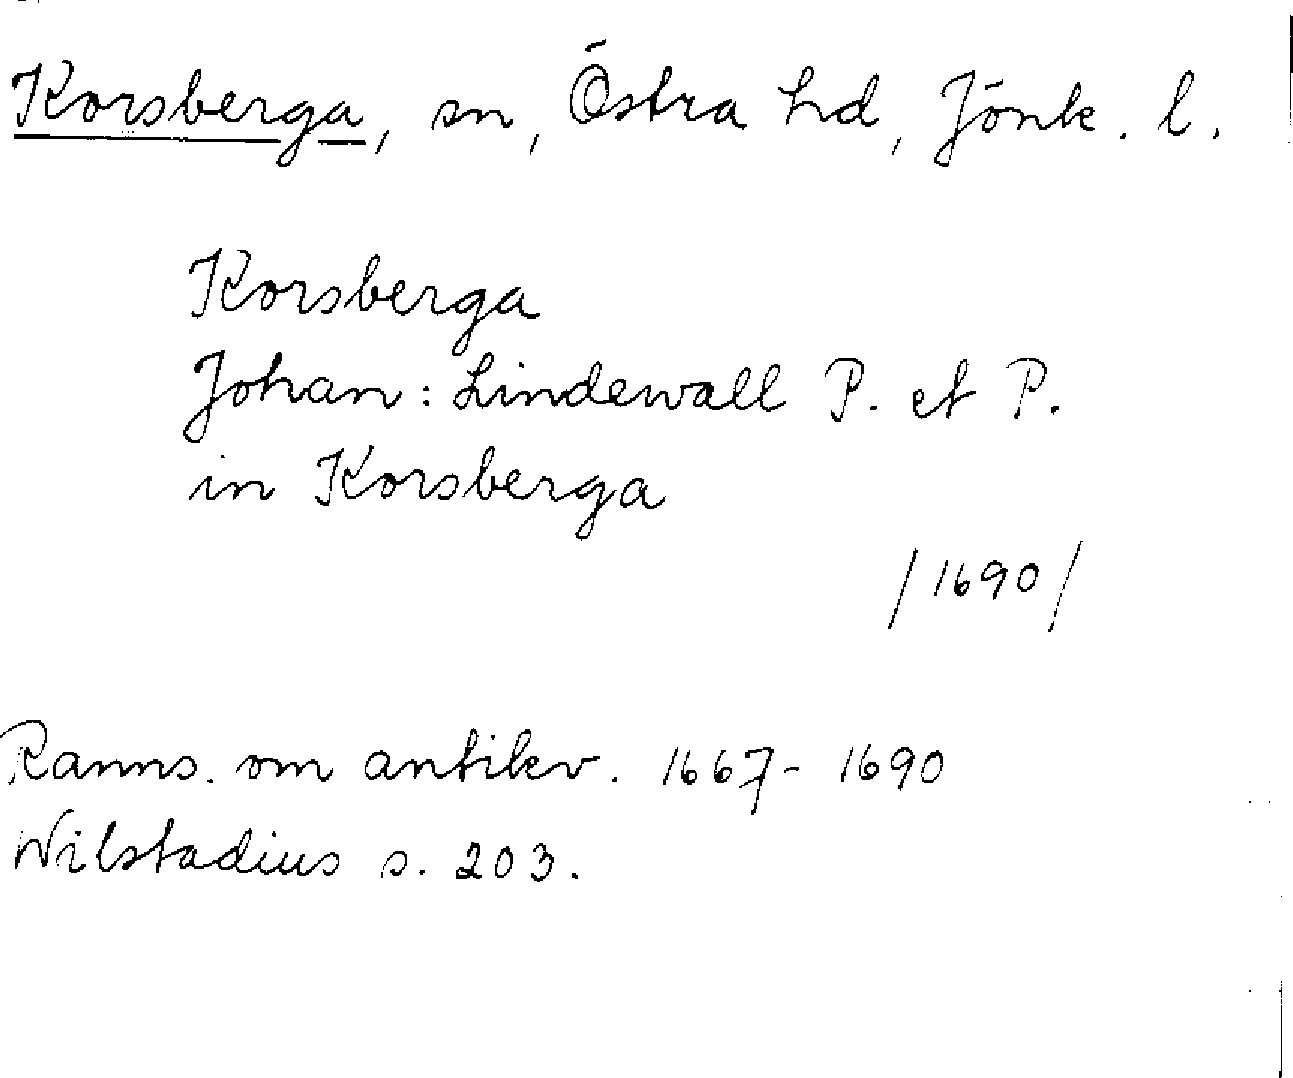 Korsberga, sn, Östra hd, Jönk. l.
Korsberga
Johan: Lindewall P. et P.
in Korsberga
/1690/
Ranns. om antikv. 1667-1690
Wilstadius s. 203.